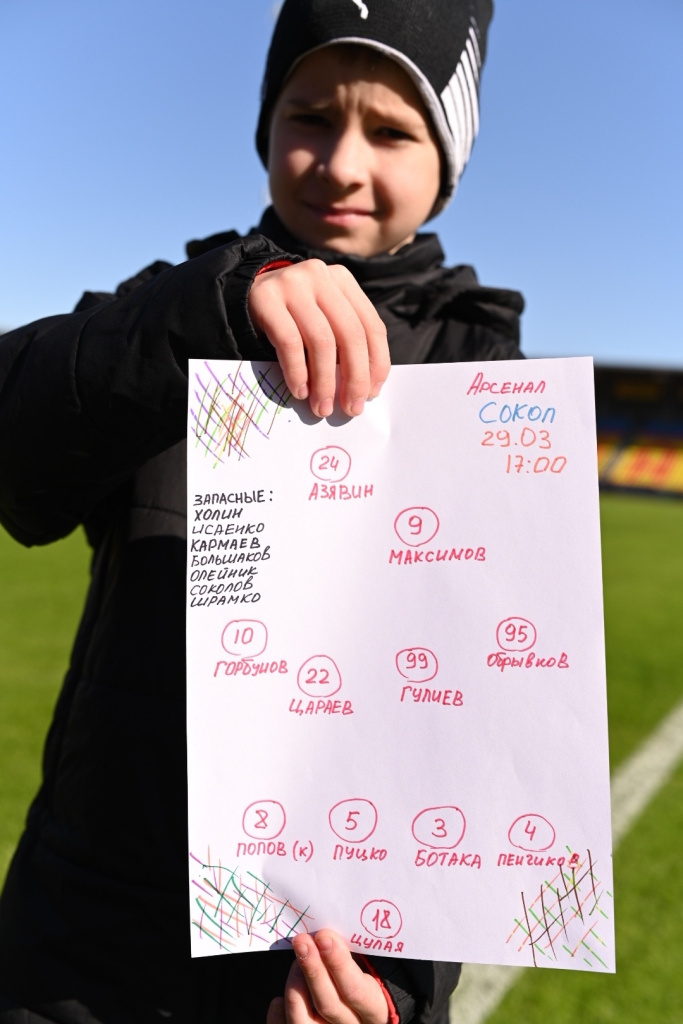 Арсенал
СОКОЛ
29.03
17:00
24
АЗЯВИН
ЗАПАСНЫЕ:
ХОЛИН
ИСАЕНКО
КАРМАЕВ
БОЛЬШАКОВ
ОЛЕЙНИК
СОКОЛОВ
ШРАМКО
9
МАКСИМОВ
10
ГОРБУНОВ
22
ЦАРАЕВ
99
ГУЛИЕВ
95
ОБРЫВКОВ
8
ПОПОВ (К)
5
ПУЦКО
3
БОТАКА
4
ПЕНЧИКОВ
18
ЦУЛАЯ